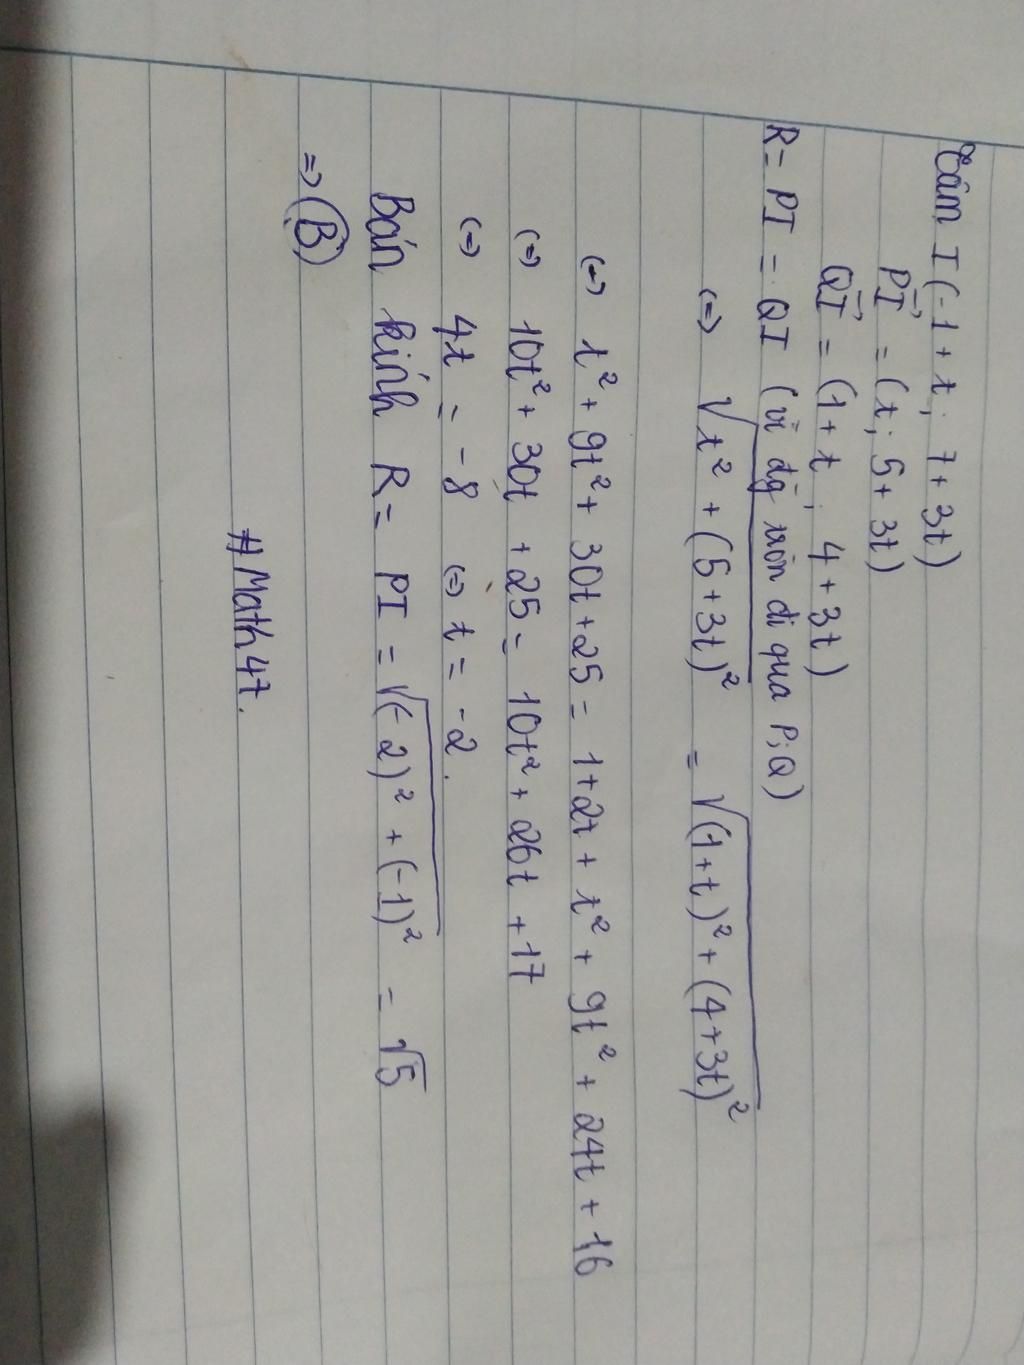 Tâm I (-1 + t; 7 + 3t)
PI→ = (t; 5 + 3t)
QI→ = (1 + t; 4 + 3t)
R = PI = QI (vì đg tròn đi qua P; Q)
(=) √(t² + (5 + 3t)²) = √((1+t)² + (4+3t)²)
(=) t² + 9t² + 30t + 25 = 1 + 2t + t² + 9t² + 24t + 16
(=) 10t² + 30t + 25 = 10t² + 26t + 17
(=) 4t = -8 (=) t = -2.
Bán kính R = PI = √((-2)² + (-1)²) = √5
=> (B)
#Math47.